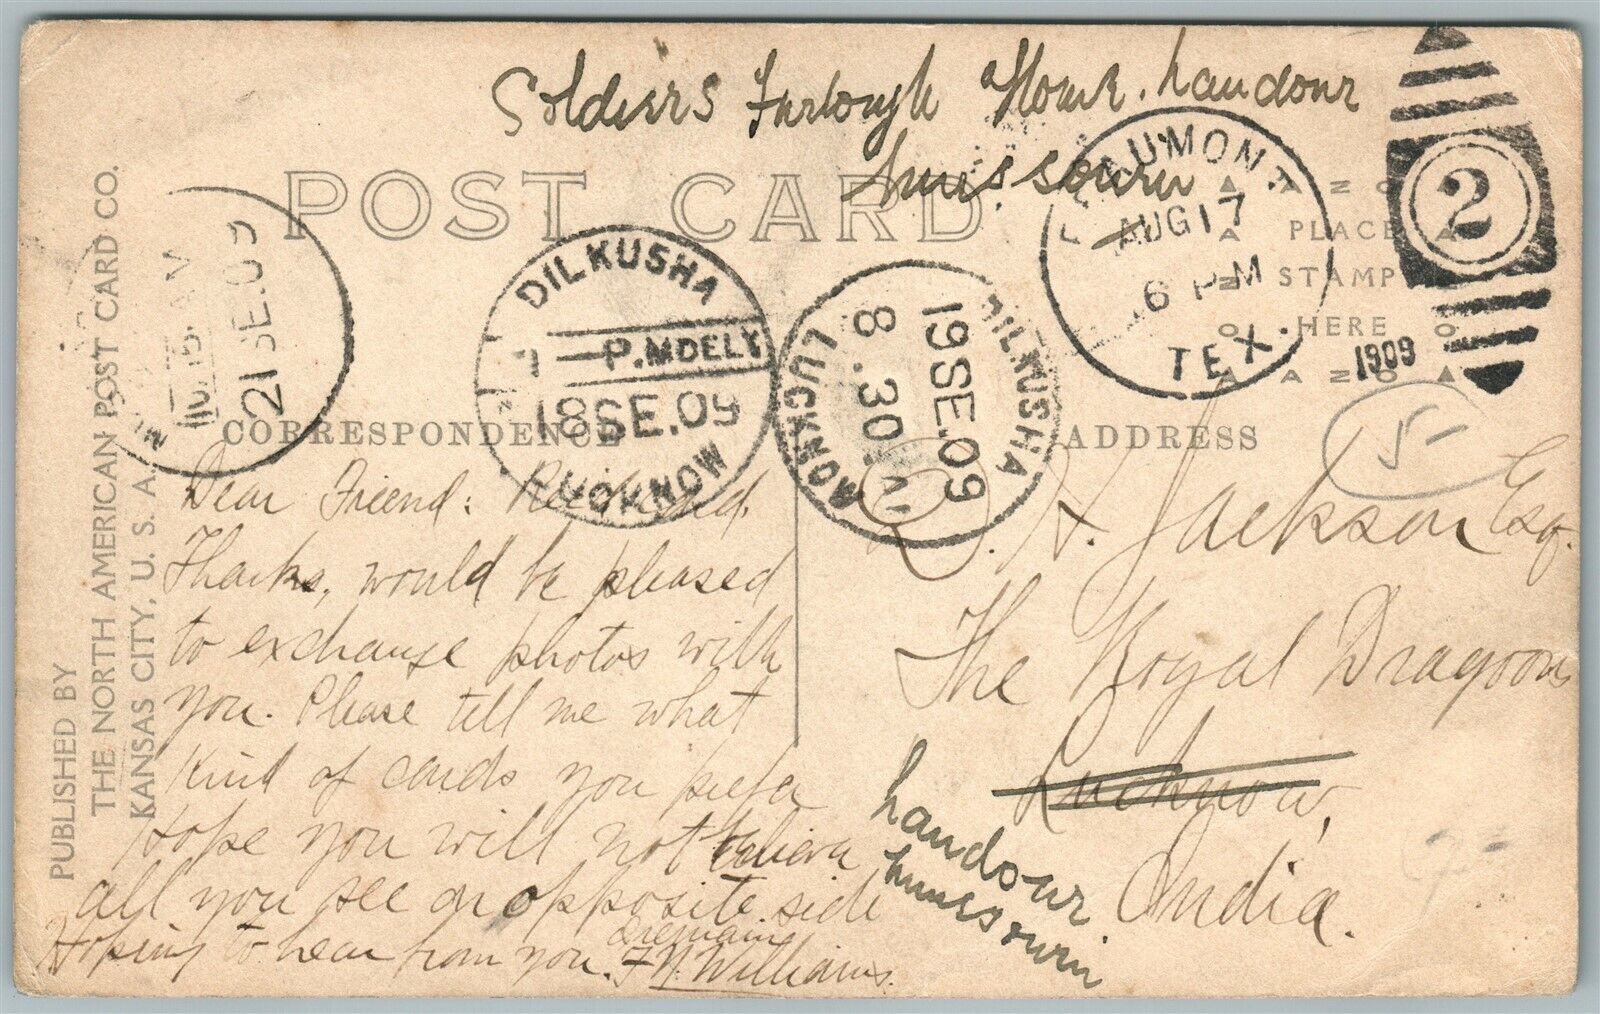 Soldiers Furlough Home. Landour
Mussourin
POST CARD
BEAUMONT
AUG 17
6 PM
TEX.
1909
2
PLACE
STAMP
HERE
DILKUSHA
7 P.M DELY
18 SE.09
LUCKNOW
DILKUSHA
19 SE.09
8.30 AM
LUCKNOW
21 SE.09
PUBLISHED BY
THE NORTH AMERICAN POST CARD CO.
KANSAS CITY, U. S. A.
CORRESPONDENCE
Dear Friend: Rec'd card.
Thanks, would be pleased
to exchange photos with
you. Please tell me what
kind of cards you prefer
Hope you will not believe
all you see on opposite side
Hoping to hear from you. I remain
F N Williams.
ADDRESS
51
D. H. Jackson Esq.
The Royal Dragoons
Lucknow,
India.
Landour
Mussourin